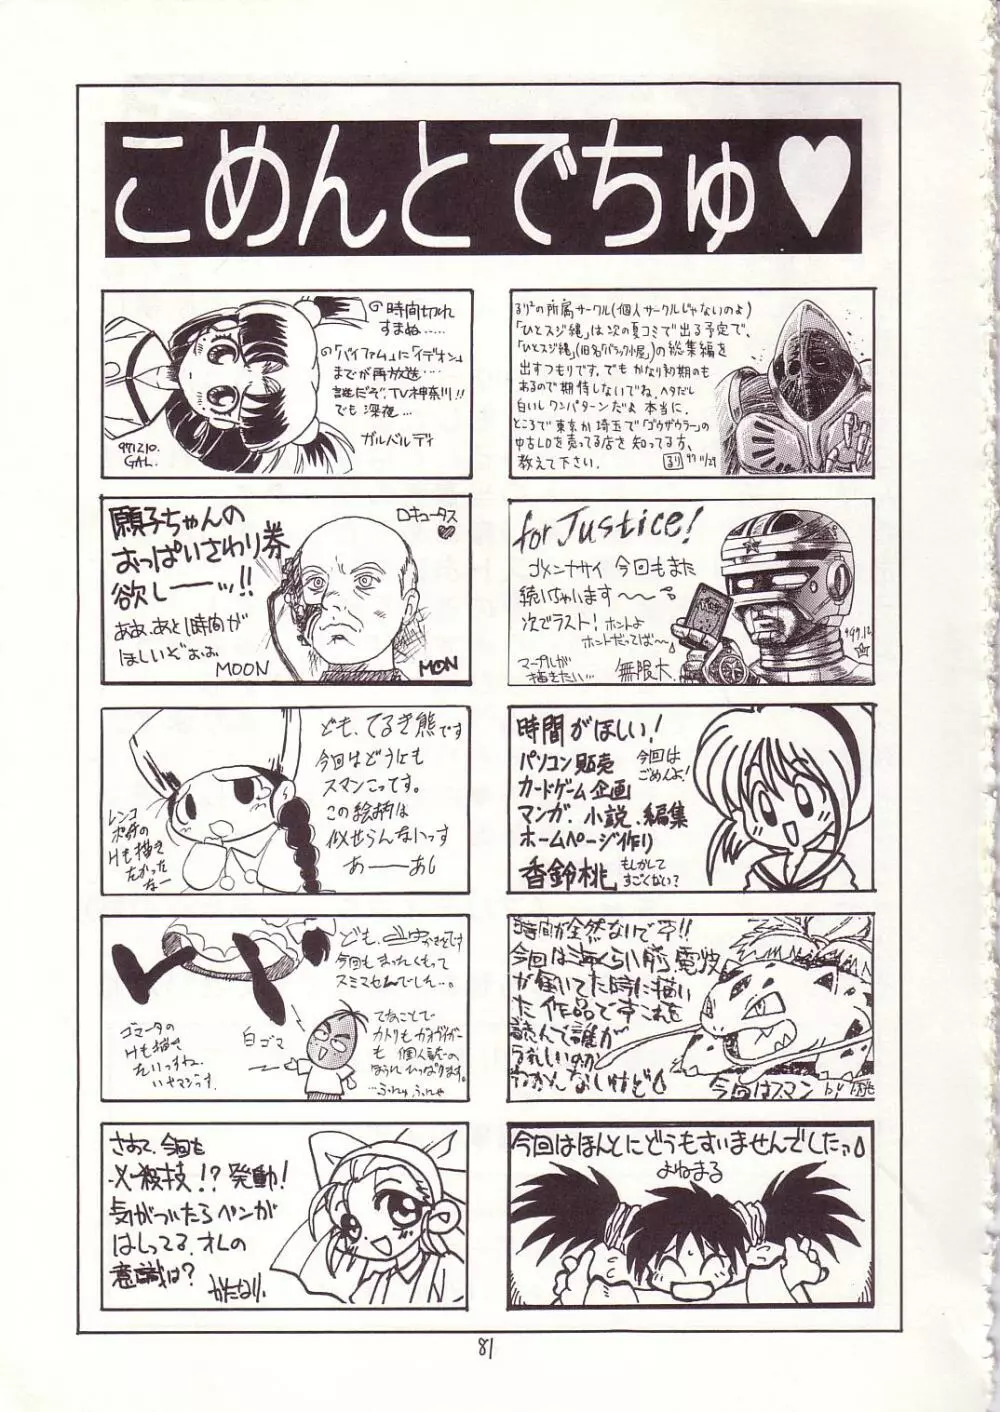 こめんとでちゅ♥
時間切れ
すまぬ……
「バイファム」に「イデオン」
までが再放送…
誰だぞ、TV神奈川!!
でも深夜…
ガルベルディ
971210.
GAL.
るり²の所属サークル(個人サークルじゃないのよ)
「ひとスジ縄」は次の夏コミで出る予定で、
「ひとスジ縄」(旧名「バラック小屋」)の総集編を
出すつもりです。でも かなり初期のも
あるので期待しないでね。ヘタだし
白いしワンパターンだよ 本当に.
ところで東京か埼玉で「ゴウザウラー」の
中古LDを売ってる店を知ってる方、
教えて下さい.
るり 97 11/29
願子ちゃんの
おっぱいさわり券
欲しーーッ!!
ああ、あと1時間が
ほしいぞぉぉ
MOON
ロキュータス
♥
MOON
for Justice!
ゴメンナサイ 今回もまた
続いちゃいます〜〜
次でラスト! ホントよ
ホントだってば〜
マーブルが
描きたい…
無限大.
ども、てるき熊です
今回はどうにも
スマンこってす。
この絵柄は
似せらんないっす
あーーあし
レンコ
Hも描き
たかった
なー
時間がほしい!
パソコン販売
カードゲーム企画
マンガ、小説、編集
ホームページ作り
香鈴桃
今回は
ごめんよ!
もしかして
すごくない?
今回もまったくもって
スミマセんでしん…。
ゴマータの
Hも描き
たいっすね.
いヤマジっす.
白ゴマ
てなことで
カトリもガオガイガー
も 個人誌への
ほうへひっぱります。
…ふんゅ ふんゃ
時間が全然ないです!!
今回は海くらい前、電波
が届いてた時に描い
た作品です これを
読んで誰が
うれしいのか
わかんなしけど
今回はスマン
さあて、今回も
必殺技!? 発動!
気がついたらペンが
はしってる.オレの
意識は?
かたなり.
今回はほんとにどうもすいませんでしたっ
よねまる
81